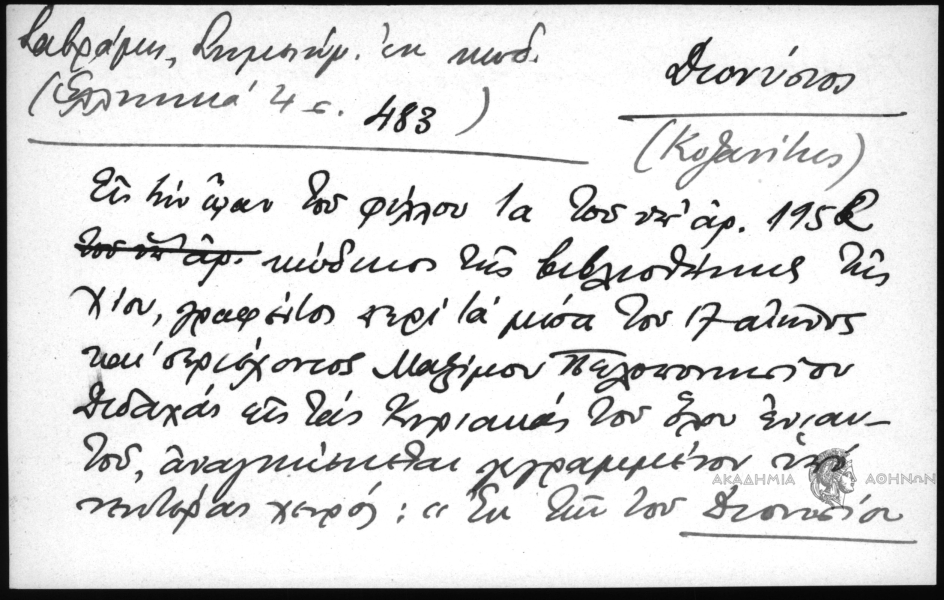 Σαβράμης, Σημειώμ. ἐκ κωδ.
(Ἑλληνικά 4 σ. 483)
Διονύσιος
(Κοζανίτης)
Εἰς τὴν ᾤαν τοῦ φύλλου 1α τοῦ ὑπ' ἀρ. 195
τοῦ ὑπ' ἀρ. κώδικος τῆς βιβλιοθήκης τῆς
Χίου, γραφέντος περὶ τὰ μέσα τοῦ 17 αἰῶνος
καὶ περιέχοντος Μαξίμου Πελοποννησίου
Διδαχὰς εἰς τὰς Κυριακὰς τοῦ ὅλου ἐνιαυ-
τοῦ, ἀναγινώσκεται γεγραμμένον ὑπὸ
νεωτέρας χειρός: "Ἐκ τῶν τοῦ Διονυσίου
ΑΚΑΔΗΜΙΑ ΑΘΗΝΩΝ